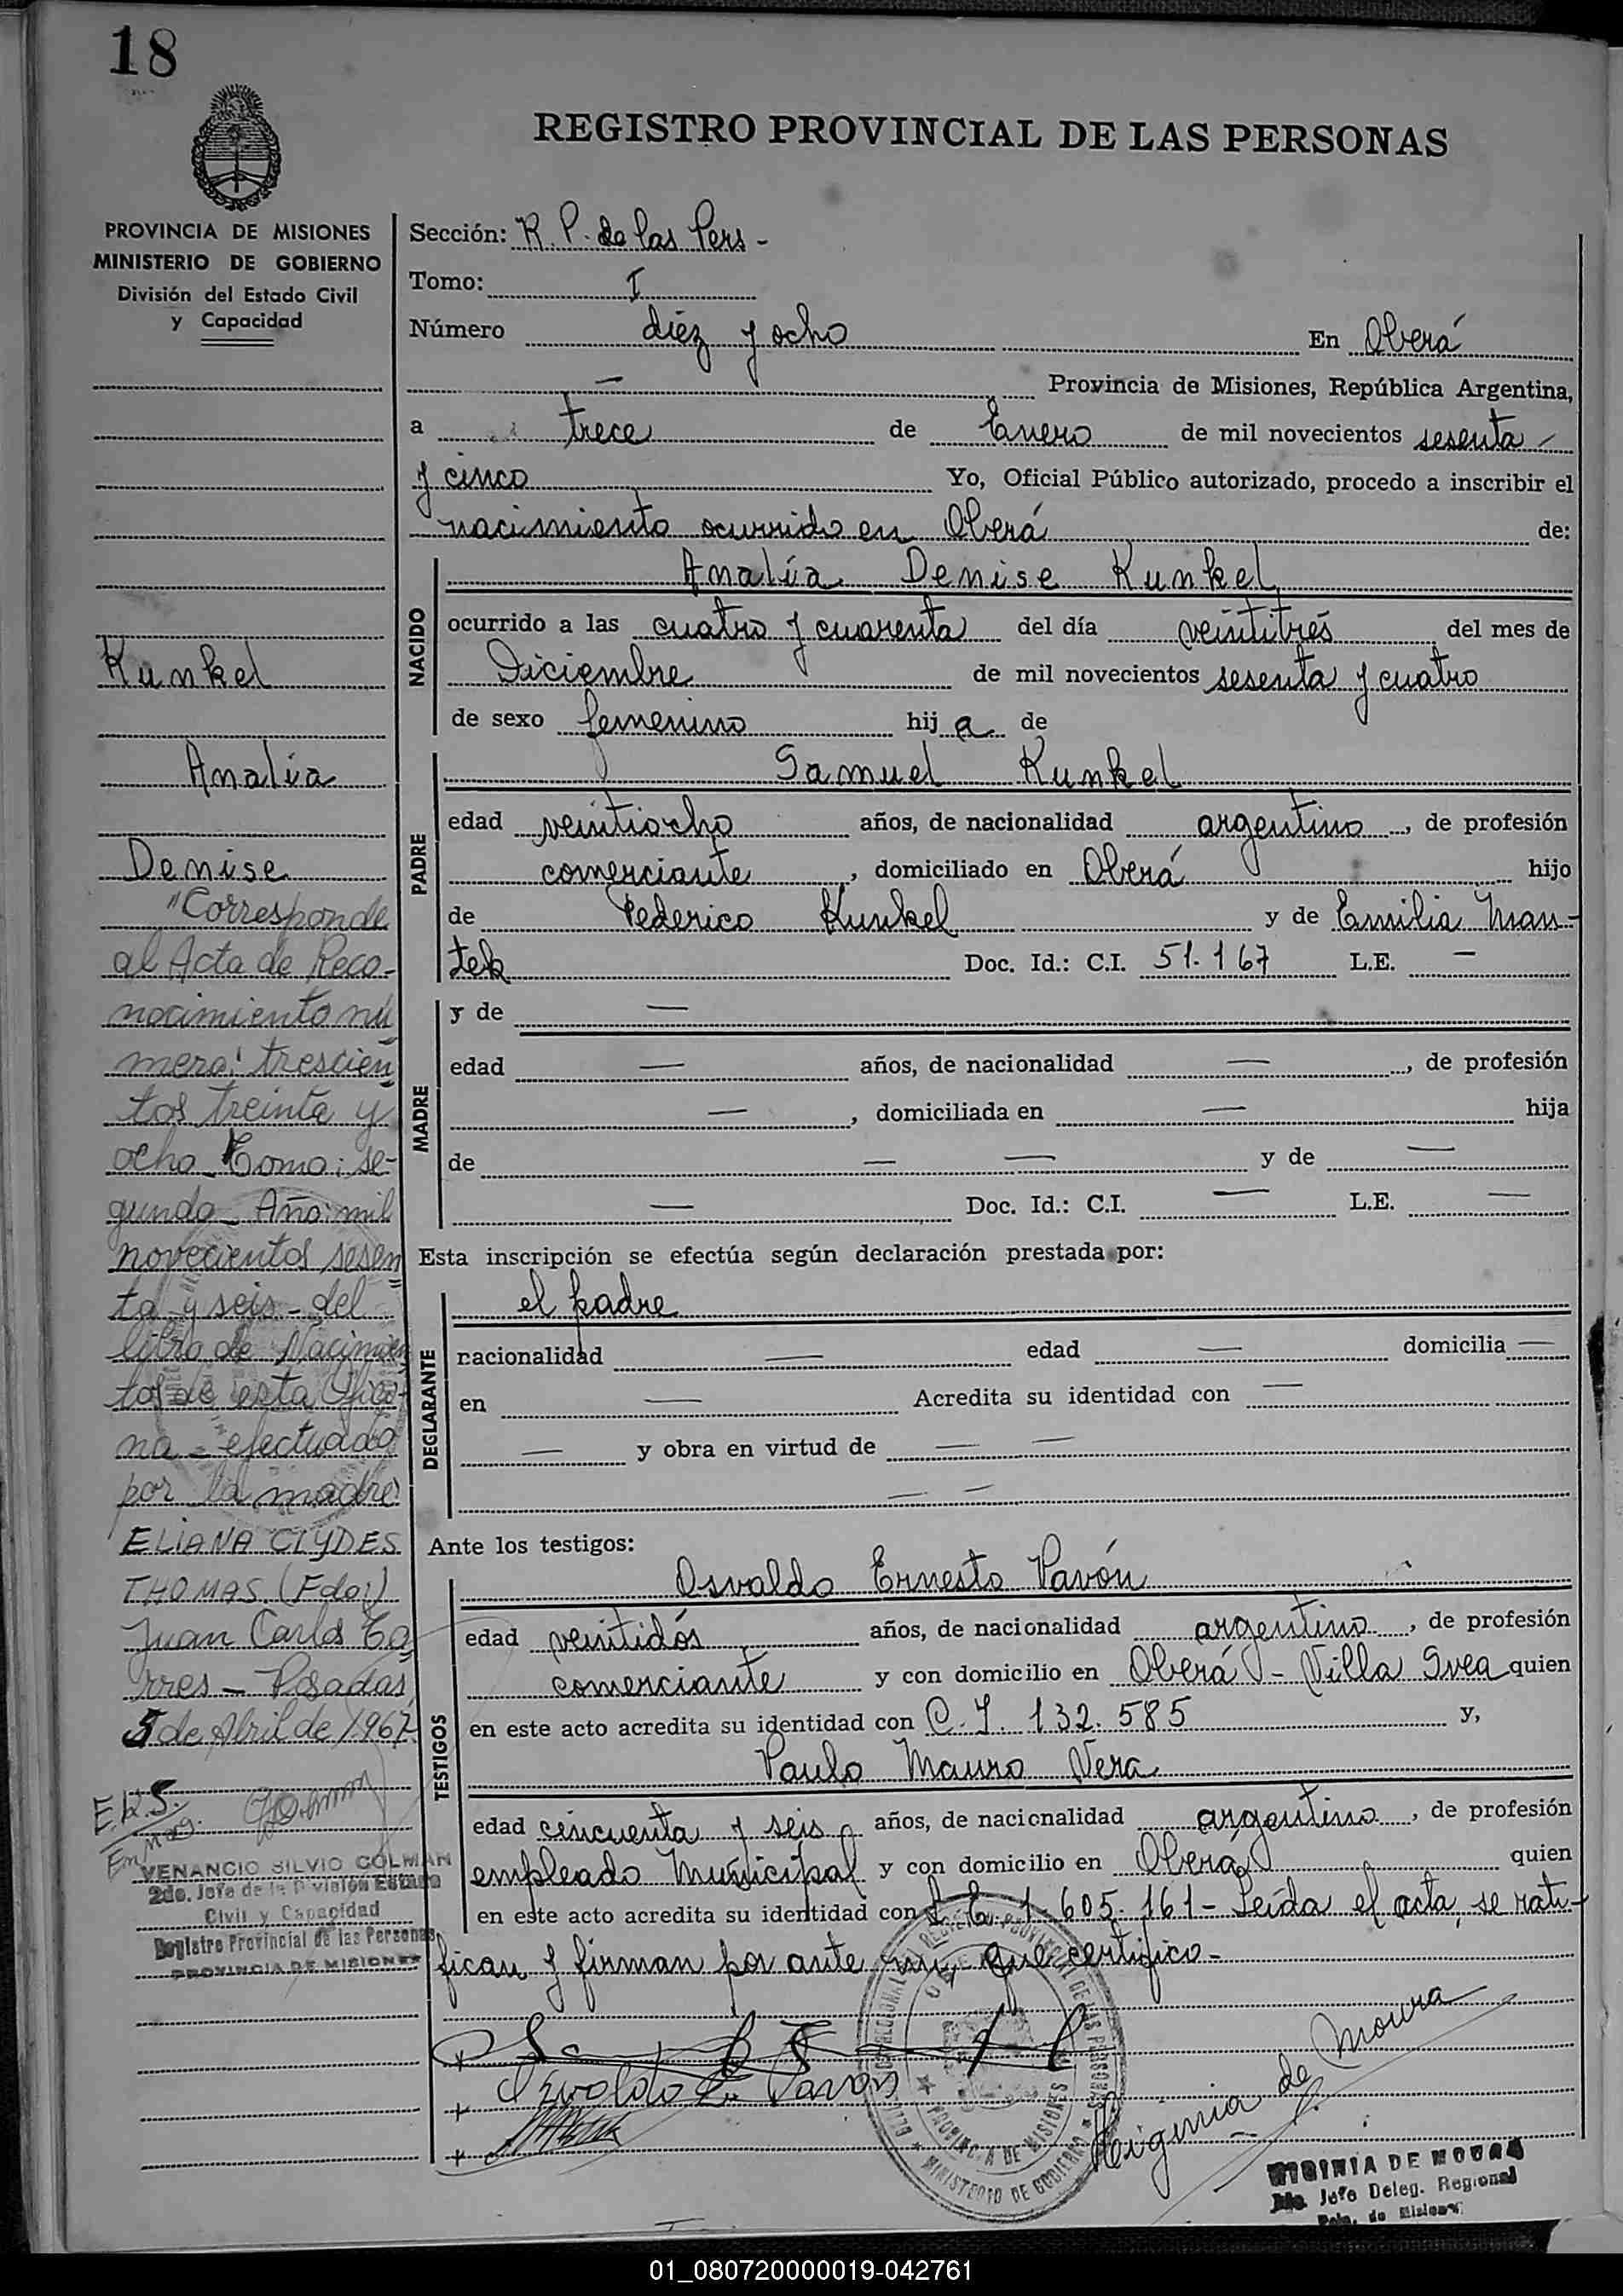 18
REGISTRO PROVINCIAL DE LAS PERSONAS
PROVINCIA DE MISIONES
MINISTERIO DE GOBIERNO
División del Estado Civil
y Capacidad
Kunkel
Analía
Denise
"Corresponde
al Acta de Reco-
nocimiento nú
mero: trescien
tos treinta y
ocho - Tomo: se-
gundo - Año: mil
novecientos sesen
ta y seis - del
libro de Nacimien
tos de esta Ofici-
na - efectuado
por la madre
ELIANA CLYDES
THOMAS. (Fdo:)
Juan Carlos To
rres - Posadas
5 de Abril de 1967.
E.R.S.
VENANCIO SILVIO COLMAN
2do. Jefe de la División Estado
Civil y Capacidad
Registro Provincial de las Personas
PROVINCIA DE MISIONES
Sección: R. P. de las Pers -
Tomo: I
Número diez y ocho En Oberá
— Provincia de Misiones, República Argentina,
a trece de Enero de mil novecientos sesenta
y cinco Yo, Oficial Público autorizado, procedo a inscribir el
nacimiento ocurrido en Oberá de:
NACIDO
Analía Denise Kunkel
ocurrido a las cuatro y cuarenta del día veintitrés del mes de
Diciembre de mil novecientos sesenta y cuatro
de sexo femenino hij a de
PADRE
Samuel Kunkel
edad veintiocho años, de nacionalidad argentino, de profesión
comerciante, domiciliado en Oberá hijo
de Federico Kunkel y de Emilia Man-
tek Doc. Id.: C.I. 51.167 L.E. —
MADRE
y de —
edad — años, de nacionalidad —, de profesión
—, domiciliada en — hija
de — — y de —
— Doc. Id.: C.I. — L.E. —
Esta inscripción se efectúa según declaración prestada por:
DECLARANTE
el padre
nacionalidad — edad — domicilia —
en — Acredita su identidad con —
— y obra en virtud de — —
— —
Ante los testigos:
TESTIGOS
Osvaldo Ernesto Pavón
edad veintidós años, de nacionalidad argentino, de profesión
comerciante y con domicilio en Oberá - Villa Svea quien
en este acto acredita su identidad con C.I. 132.585 y,
Paulo Mauro Vera
edad cincuenta y seis años, de nacionalidad argentino, de profesión
empleado Municipal y con domicilio en Oberá quien
en este acto acredita su identidad con L.E. 1.605.161 - Leída el acta, se rati-
fican y firman por ante mí, que certifico -
Osvaldo E. Pavón
Higinia de Moura
PROVINCIA DE MISIONES
MINISTERIO DE GOBIERNO
HIGINIA DE MOURA
Jefe Deleg. Regional
Pcia. de Misiones
01_080720000019-042761